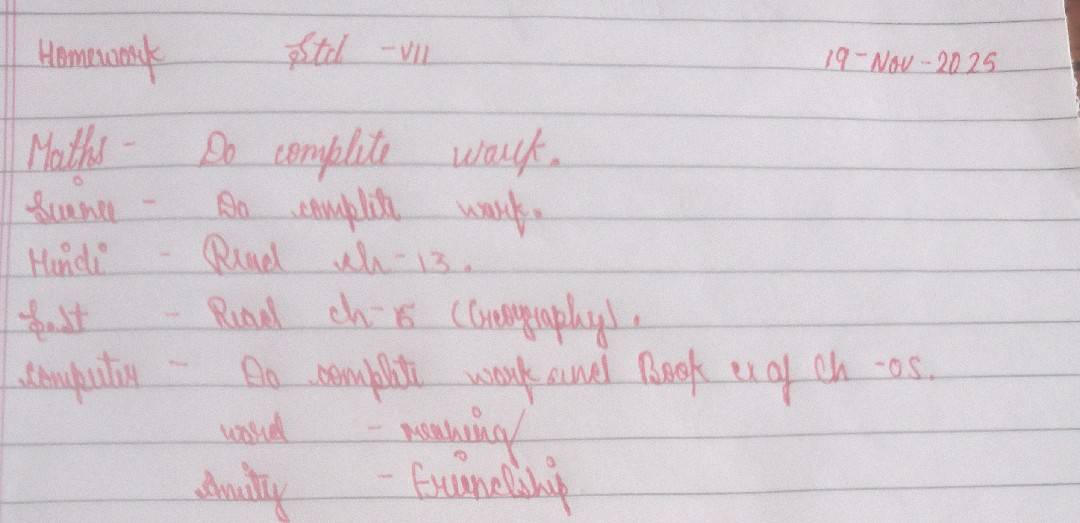 Homework Std -VII 19-Nov-2025
Maths - Do complete work.
Science - Do complete work.
Hindi - Read ch-13.
S.St - Read ch-5 (Geography).
Computer - Do complete work and Book ex of Ch -05.
word - meaning
Amity - Friendship